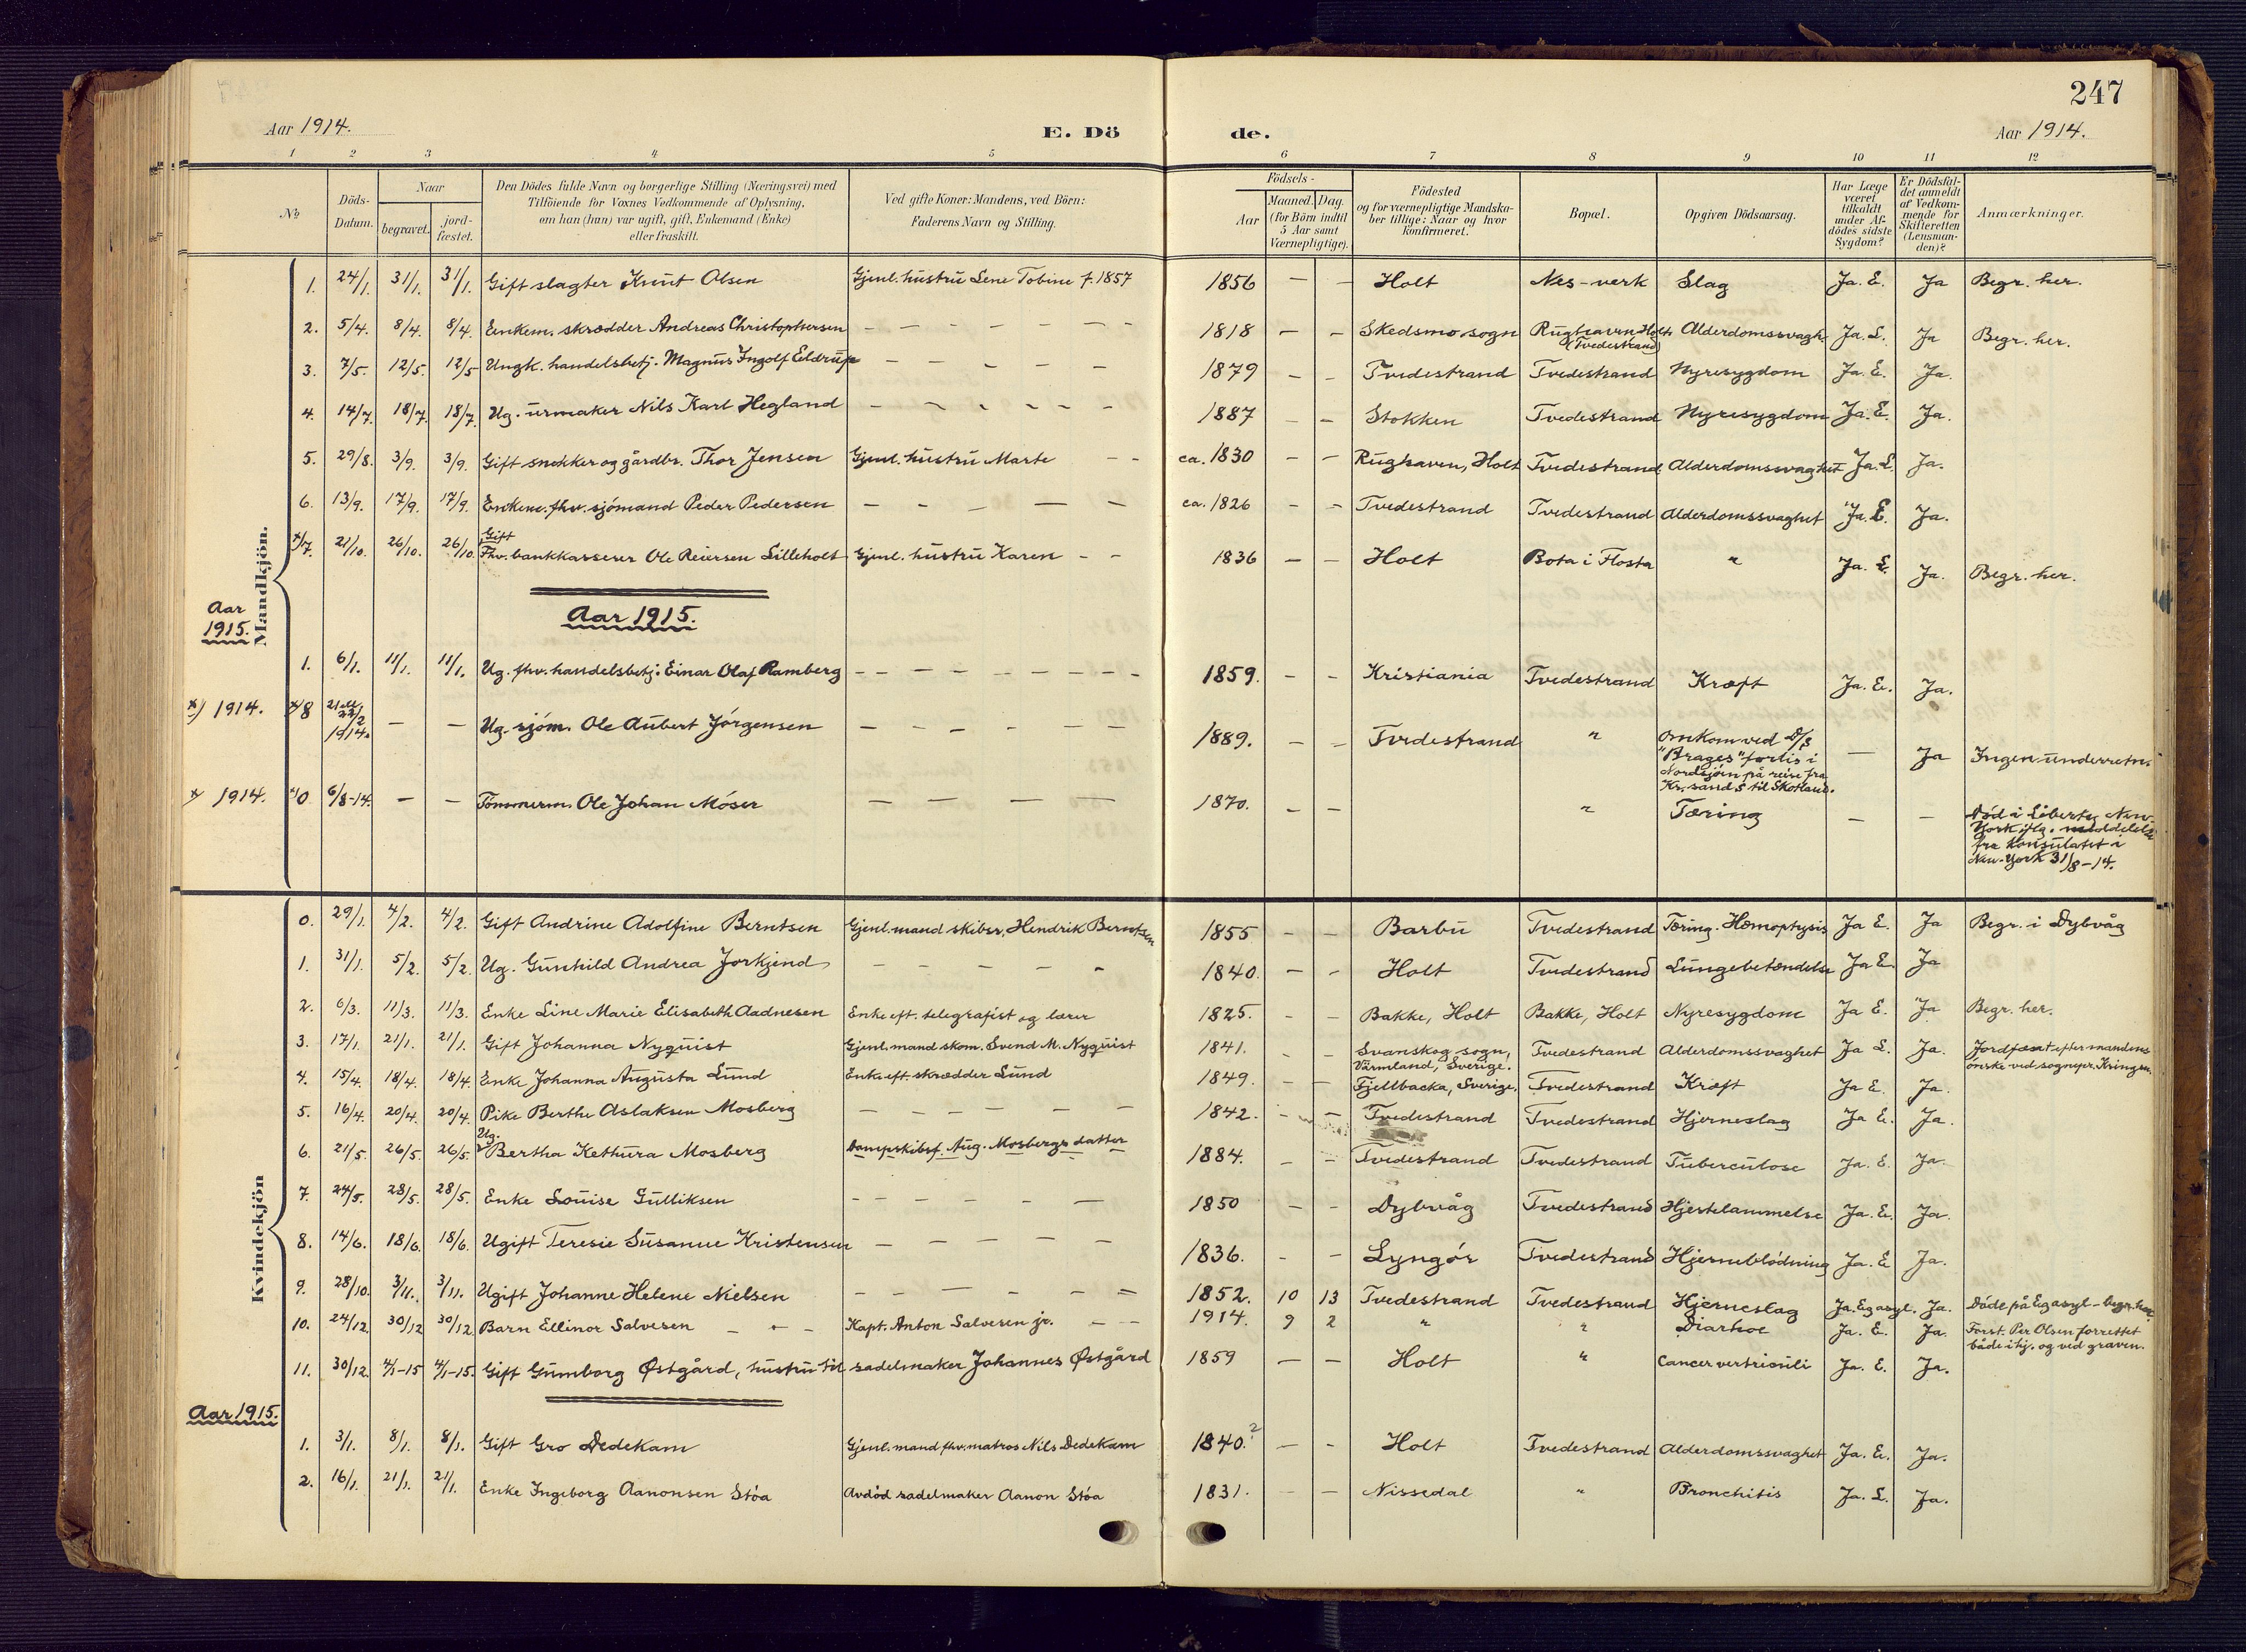 247
Aar 1914. E. Dö de. Aar 1914.
1 2 3 4 5 6 7 8 9 10 11 12
No Döds-Datum. Naar begravet. jord-fæstet. Den Dödes fulde Navn og borgerlige Stilling (Næringsvei) med Tilföiende for Voxnes Vedkommende af Oplysning, om han (hun) var ugift, gift, Enkemand (Enke) eller fraskilt. Ved gifte Koner: Mandens, ved Börn: Faderens Navn og Stilling. Födsels- Aar Maaned. Dag. (for Börn indtil 5 Aar samt Værnepligtige). Födested og for værnepligtige Mandskaber tillige: Naar og hvor konfirmeret. Bopæl. Opgiven Dödsaarsag. Har Læge været tilkaldt under Afdödes sidste Sygdom? Er Dödsfaldet anmeldt af Vedkommende for Skifteretten (Lensmanden)? Anmærkninger.
Mandkjön.
1. 24/1. 31/1. 31/1. Gift slagter Knut Olsen Gjenl. hustru Lene Tobine f. 1857 1856 — — Holt Nes-verk Slag Ja. E. Ja Begr. her.
2. 5/4. 8/4. 8/4. Enkem. skrædder Andreas Christophersen — — — 1818 — — Skedsmo sogn Rughaven Holt (Tvedestrand) Alderdomssvagh. Ja. E. Ja Begr. her.
3. 7/5. 12/5. 12/5 Ungk. handelsbetj. Magnus Ingolf Eeldrup — — — 1879 — — Tvedestrand Tvedestrand Nyresygdom Ja. E. Ja.
4. 14/7. 18/7. 18/7. Ug. urmaker Nils Karl Hegland — — — 1887 — — Stokken Tvedestrand Nyresygdom Ja. E. Ja.
5. 29/8. 3/9. 3/9. Gift snekker og gårdbr. Thor Jensen Gjenl. hustru Marte — — ca. 1830 — — Rughaven, Holt Tvedestrand Alderdomssvaghet Ja. E. Ja.
6. 13/9. 17/9. 17/9. Enkem. fhv. sjömand Peder Pedersen — — — ca. 1826 — — Tvedestrand Tvedestrand Alderdomssvaghet Ja. E. Ja.
x/7. 21/10. 26/10. 26/10. Gift Fhv. bankkasserer Ole Reiersen Lilleholt Gjenl. hustru Karen — — 1836 — — Holt Bota i Flosta " Ja. E. Ja. Begr. her.
Aar 1915.
Aar 1915.
1. 6/1. 11/1. 11/1. Ug. fhv. handelsbetj. Einar Olaf Ramberg — — — 1859. — — Kristiania Tvedestrand Kræft Ja. E. Ja.
x) 1914. x/8 22/2 1914. — — Ug. sjöm. Ole Aubert Jörgensen — — — 1889. — — Tvedestrand " Omkom ved D/S "Brages" forlis i Nordsjöen på reise fra Kr.sand S til Skotland. — Ja Ingen underretn.
x) 1914. x/0 6/8-14. — — Tömmerm. Ole Johan Möser — — — 1870. — — " Tæring — — Död i Liberty New-York iflg. meddelelse fra Konsulatet i New-York 31/8-14.
Kvindekjön
0. 29/1. 4/2. 4/2. Gift Andrine Adolfine Berntsen Gjenl. mand skibsr. Hendrik Berntsen 1855 — — Barbu Tvedestrand Tæring. Hæmoptysis Ja E. Ja Begr. i Dybvåg
1. 31/1. 5/2. 5/2. Ug. Gunhild Andrea Jorkjend — — — 1840. — — Holt Tvedestrand Lungebetændelse Ja E. Ja
2. 6/3. 11/3. 11/3. Enke Line Marie Elisabeth Aadnesen Enke eft. telegrafist og lærer 1825. — — Bakke, Holt Bakke, Holt Nyresygdom Ja E. Ja Begr. her.
3. 17/1. 21/1. 21/1. Gift Johanna Nyquist Gjenl. mand skom. Svend M. Nyquist 1841. — — Svanskog sogn, Värmland, Sverige. Tvedestrand Alderdomssvaghet Ja E. Ja. Jordfæstet efter mandens önske ved sognepr. Kringen.
4. 15/4. 18/4. 18/4. Enke Johanna Augusta Lund Enke eft. skrædder Lund 1849. — — Fjellbacka, Sverige. Tvedestrand Kræft Ja E. Ja.
5. 16/4. 20/4. 20/4. Pike Berthe Aslaksen Mosberg — — — 1842. — — Tvedestrand Tvedestrand Hjerneslag Ja E. Ja.
6. 21/5. 26/5. 26/5. Ug. Bertha Kethura Mosberg Dampskibsf. Aug. Mosbergs datter 1884. — — Tvedestrand Tvedestrand Tuberculose Ja. E. Ja.
7. 24/5. 28/5. 28/5. Enke Louise Gulliksen — — — 1850 — — Dybvåg Tvedestrand Hjertelammelse Ja. E. Ja.
8. 14/6. 18/6. 18/6. Ugift Teresie Susanne Kristensen — — — 1836. — — Lyngör Tvedestrand Hjerneblödning Ja. E. Ja.
9. 28/10. 3/11. 3/11. Ugift Johanne Helene Nielsen — — — 1852. 10 13 Tvedestrand Tvedestrand Hjerneslag Ja. Eg asyl. Ja. Döde på Eg asyl - begr. her
10. 24/12. 30/12 30/12. Barn Ellinor Salvesen — — — Kapt. Anton Salvesen jr. — — 1914. 9 2 " " Diarhoe Ja. E. Ja. Forst. Per Olsen forrettet både i hj. og ved graven.
11. 30/12. 4/1-15 4/1-15. Gift Gumborg Østgård, hustru til sadelmaker Johannes Østgård 1859 — — Holt " Cancer vertriculi Ja. E. Ja.
Aar 1915.
1. 3/1. 8/1. 8/1. Gift Gro Dedekam Gjenl. mand fhv. matros Nils Dedekam 1840.? — — Holt Tvedestrand Alderdomssvaghet Ja. E. Ja.
2. 16/1. 21/1. 21/1. Enke Ingeborg Aanonsen Stöa Avdöd sadelmaker Aanon Stöa 1831. — — Nissedal " Bronchitis Ja. E. Ja.